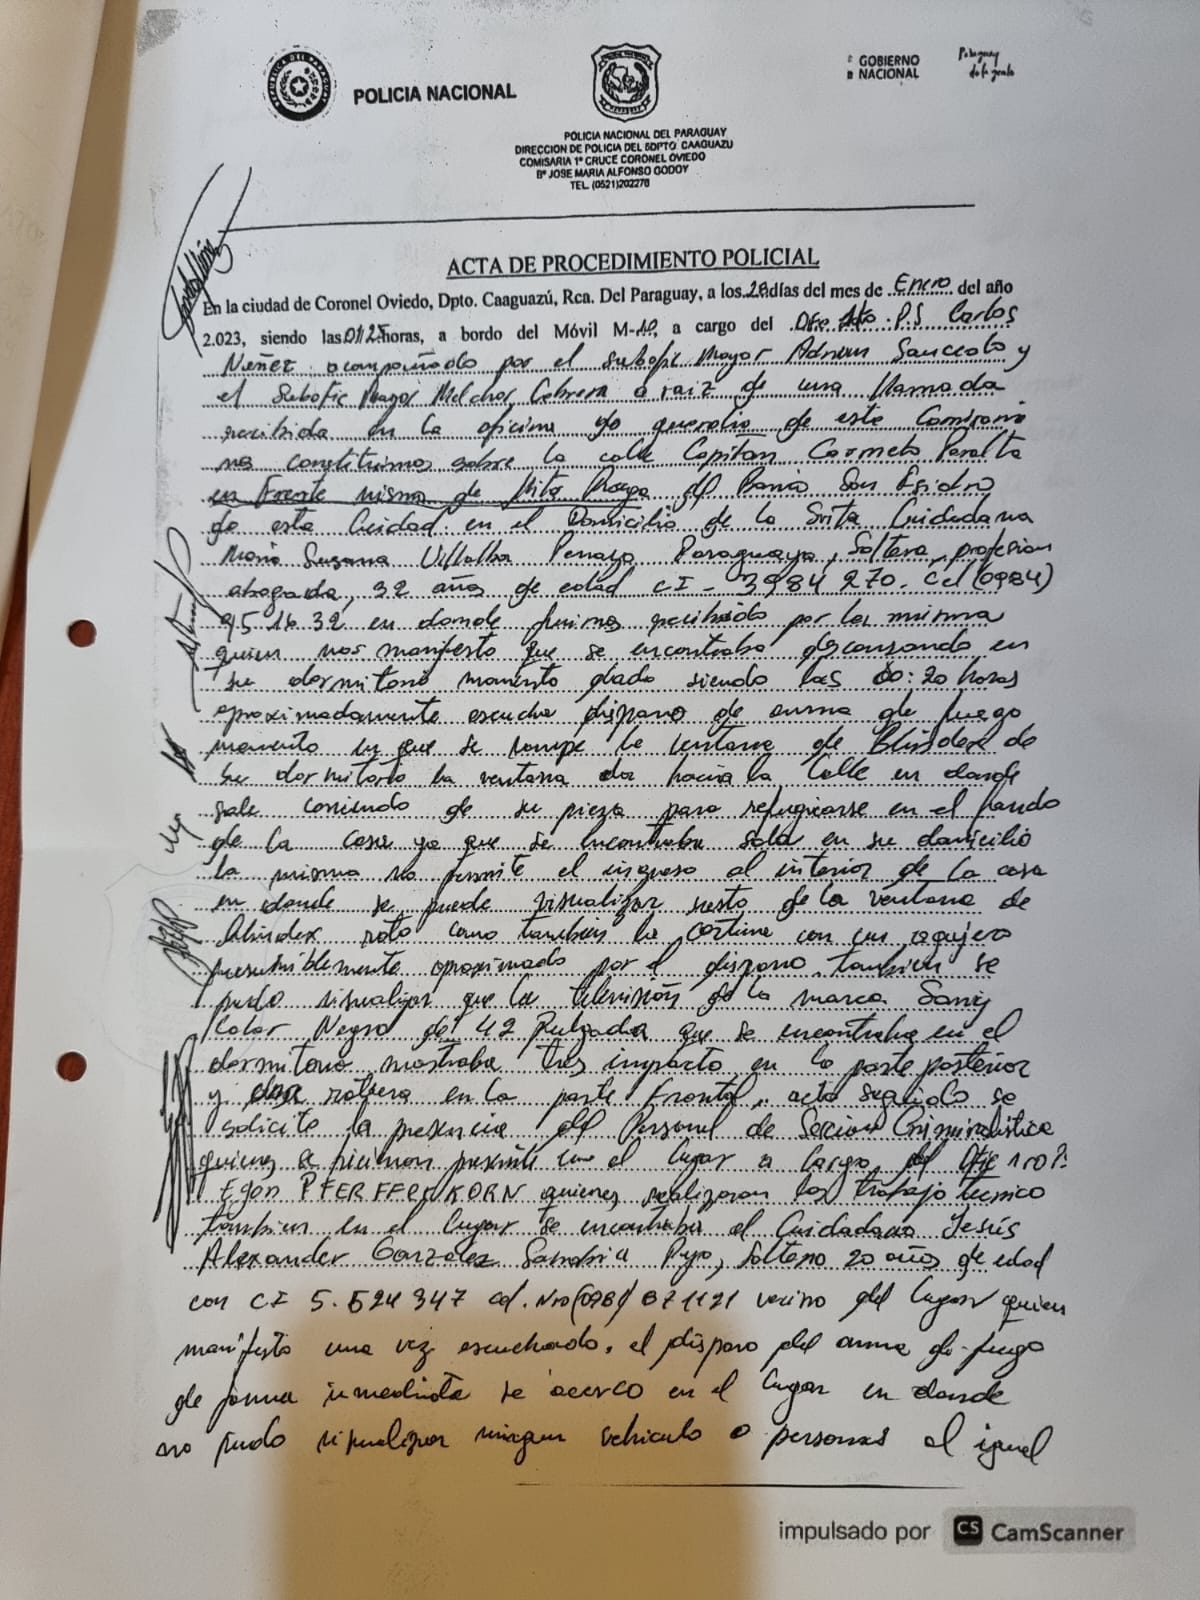 POLICIA NACIONAL
GOBIERNO
NACIONAL
Paraguay
de la gente
POLICIA NACIONAL DEL PARAGUAY
DIRECCION DE POLICIA DEL 5DPTO. CAAGUAZU
COMISARIA 1ª CRUCE CORONEL OVIEDO
Bº JOSE MARIA ALFONSO GODOY
TEL. (0521)202276
ACTA DE PROCEDIMIENTO POLICIAL
En la ciudad de Coronel Oviedo, Dpto. Caaguazú, Rca. Del Paraguay, a los días del mes de Enero del año
2.023, siendo las 01:25 horas, a bordo del Móvil M-, a cargo del P.S Carlos
Nuñez acompañado por el subofic Mayor Adrian Saucedo y
el Subofic Mayor Melchor Cabrera a raiz de una llamada
recibida en la oficina de este Comisaria
nos constituimos sobre la calle Capitan Carmelo Peralta
en Frente mismo de del Barrio San Isidro
de esta Cuidad en el Domicilio de la Srita Cuidadana
Maria Susana Villalba Penayo Paraguaya, Soltera, profesion
abogada, 32 años de edad CI - 3984 270. Cel (0984)
95 16 32 en donde fuimos recibido por la misma
quien nos manifesto que se encontraba descansando en
su dormitorio momento dado siendo las 00:20 horas
aproximadamente escucha disparo de arma de fuego
momento en que se rompe la ventana de Blindex de
su dormitorio la ventana da hacia la Calle en donde
sale corriendo de su pieza para refugiarse en el fondo
de la casa ya que se encontraba sola en su domicilio
la misma no permite el ingreso al interior de la casa
en donde se puede visualizar resto de la ventana de
Blindex roto como tambien la cortina con un agujero
presumiblemente aproximado por el disparo, tambien se
pudo visualizar que la television de la marca
Color Negro de 42 Pulgada que se encontraba en el
dormitorio mostraba tres impacto en la parte posterior
y rotura en la parte Frontal, acto seguido se
solicito la presencia del Personal de Seccion Criminalistica
quienes se hicieron presente en el lugar a cargo del Ofic 1ro P.
Egon PFERFFERKORN quienes realizaron los trabajo tecnico
tambien en el lugar se encontraba el Cuidadano Jesús
Alexander Gonzalez Sanabria Pyo, Soltero 20 años de edad
con CI 5.524 347 cel. Nro (0981) 871121 vecino del lugar quien
manifesto una vez escuchado, el disparo del arma de fuego
de forma inmediata se acerco en el lugar en donde
no pudo visualizar ningun vehiculo o personas al igual
impulsado por CS CamScanner